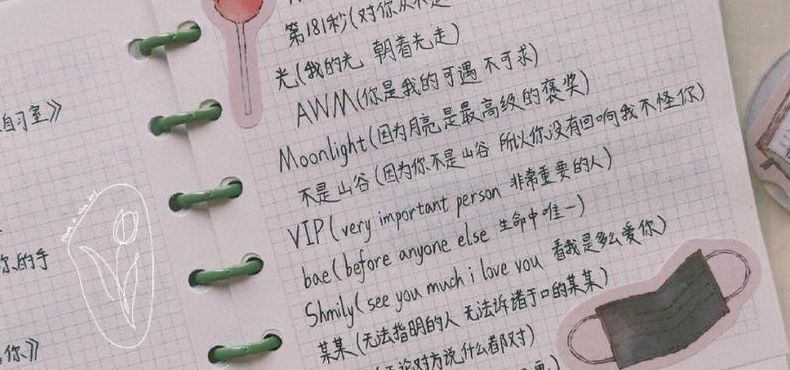 自习室》
你的手
你》
第181秒(对你从不是
光(我的光 朝着先走)
AWM(你是我的可遇 不可求)
Moonlight(因为月亮是最高级的褒奖)
不是山谷(因为你不是山谷 所以你没有回响我不怪你)
VIP(very important person 非常重要的人)
bae(before anyone else 生命中唯一)
Shmily(see you much i love you 看我是多么爱你)
某某(无法指明的人 无法诉诸于口的某某)
论对方说什么都对)